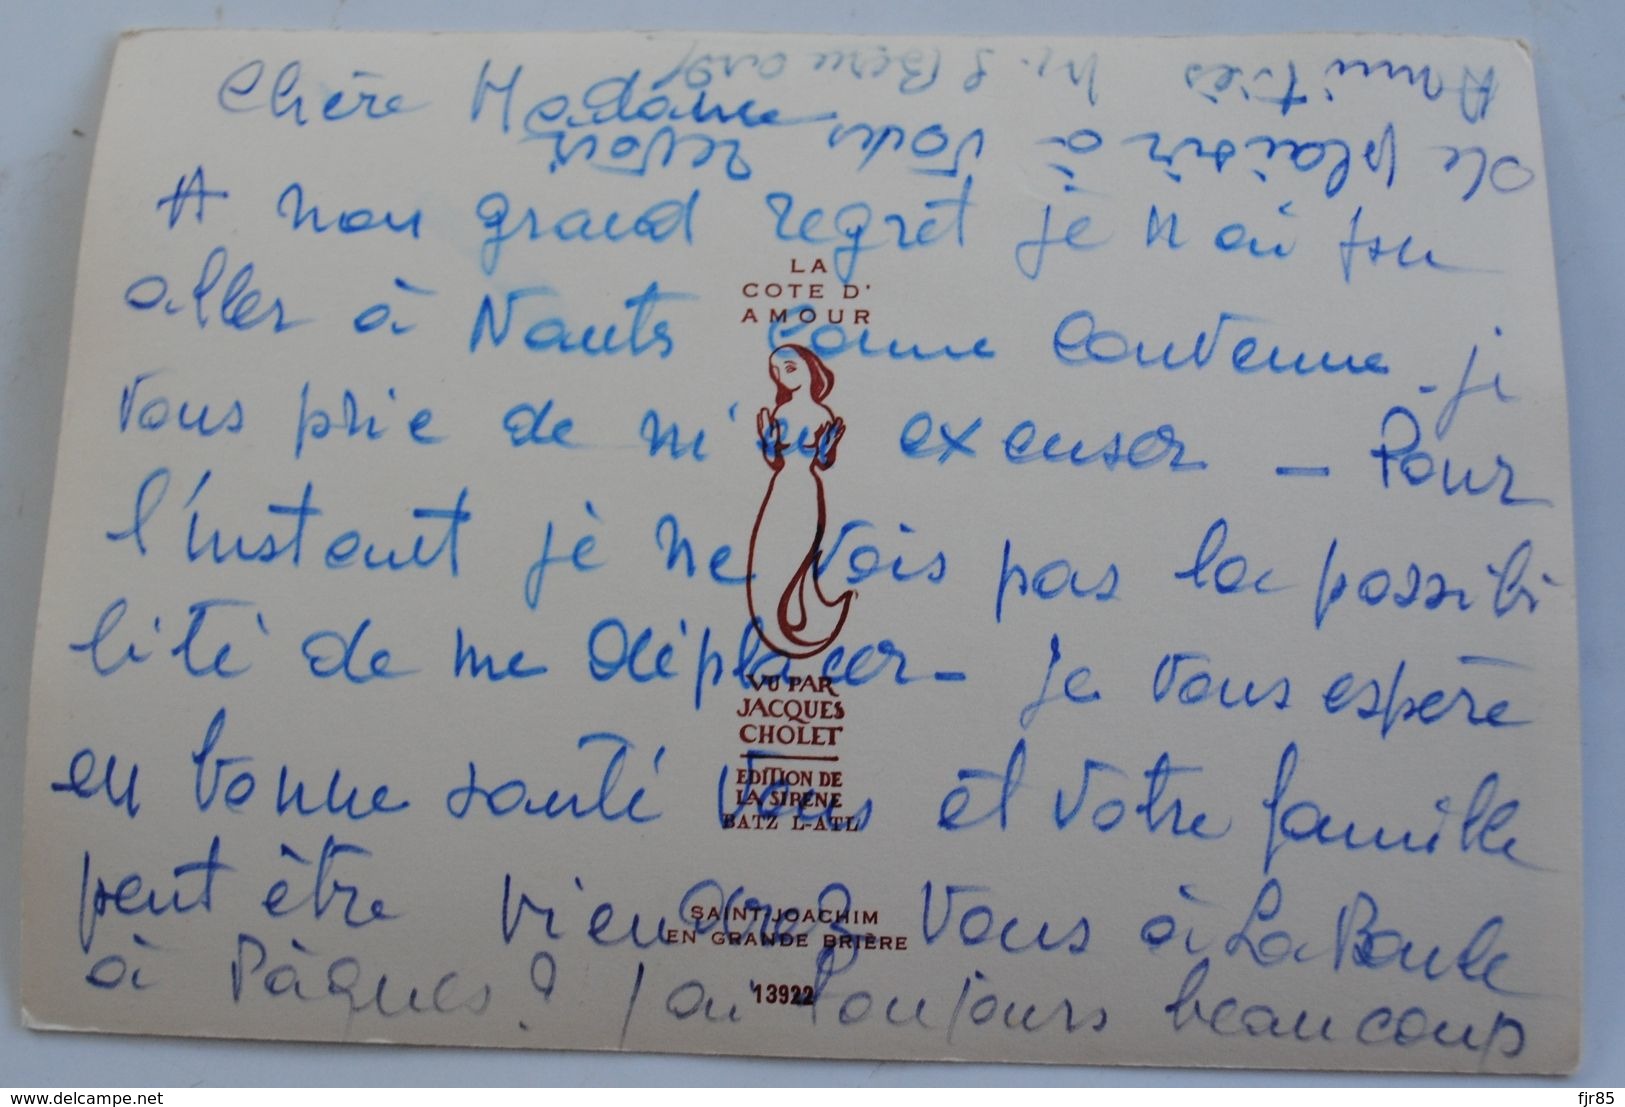 Chère Madame
A mon grand regret je n'ai pu
aller à Nantes comme convenu - je
vous prie de m'en excuser - Pour
l'instant je ne vois pas la possibi
lité de me déplacer - je vous espère
en bonne santé vous et votre famille
peut être viendrez vous à La Baule
à Pâques ? j'ai toujours beaucoup
de plaisir à vous revoir
Amitiés
LA
COTE D'
AMOUR
VU PAR
JACQUES
CHOLET
EDITION DE
LA SIRÈNE
BATZ L-ATL
SAINT-JOACHIM
EN GRANDE BRIÈRE
13922
www.delcampe.net
fjr85